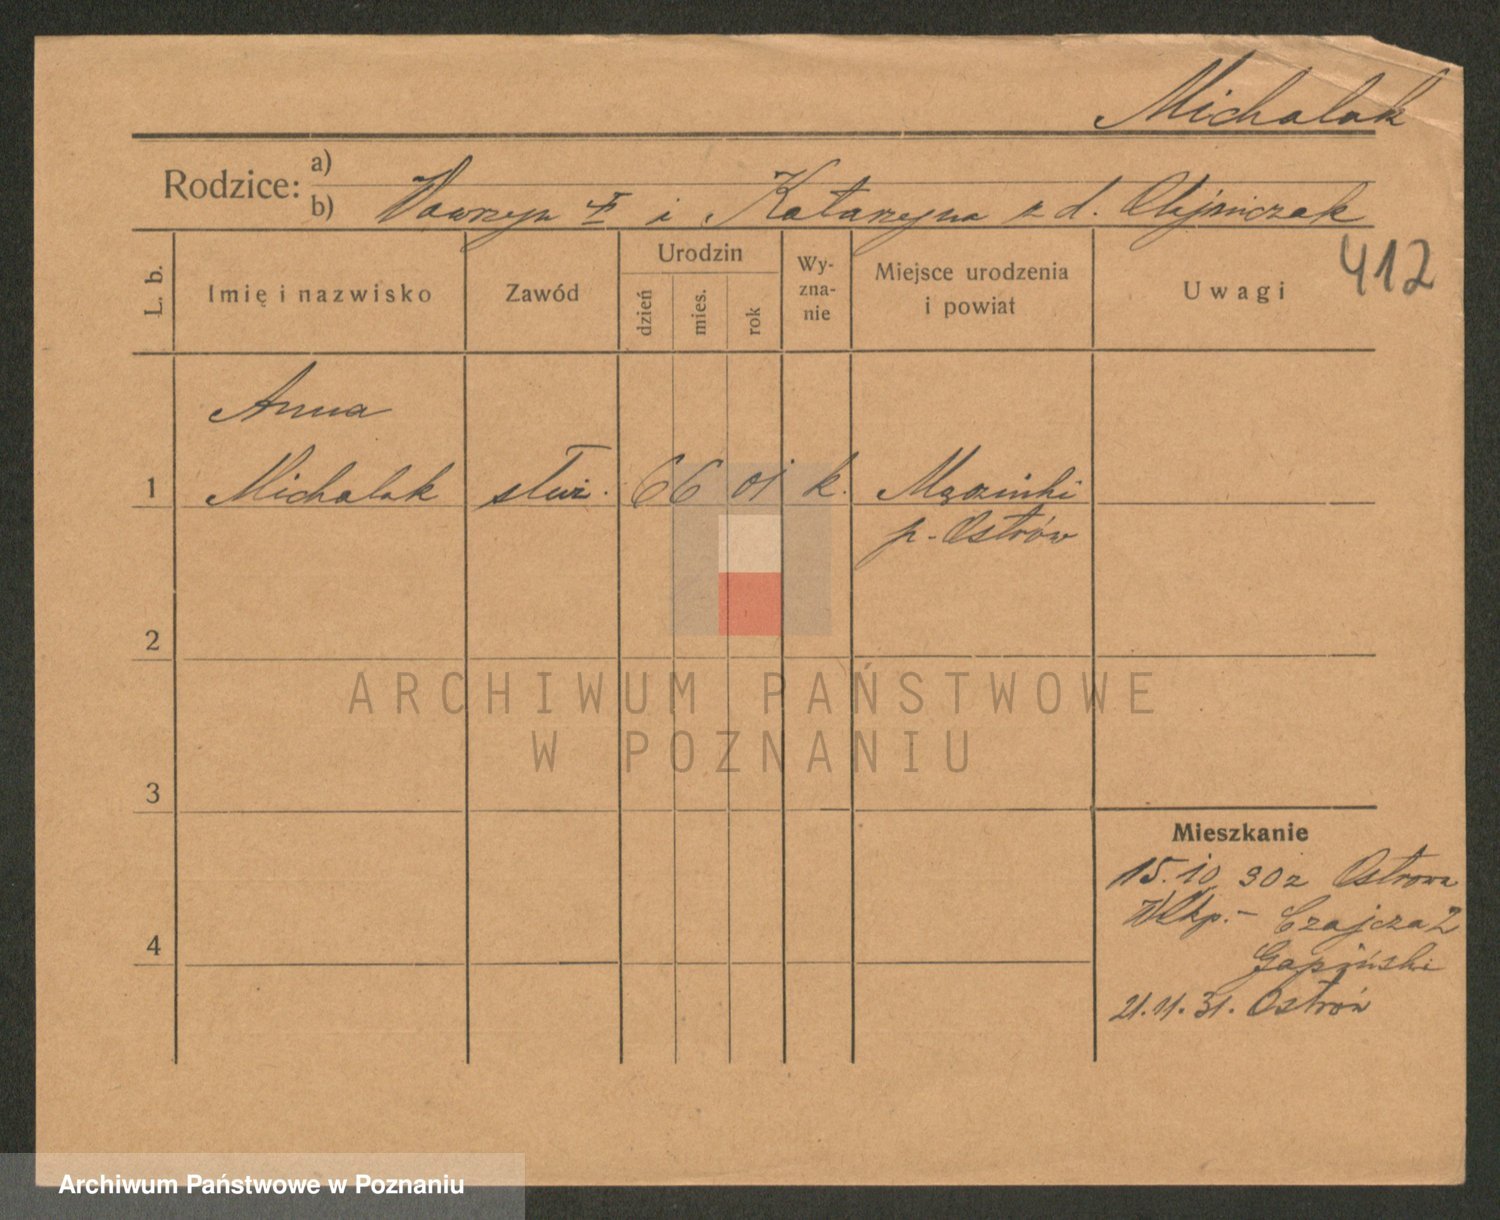 Michalak
Rodzice: a)
b) Wawrzyn i Katarzyna z d. Olejniczak
412
L. b. Imię i nazwisko Zawód Urodzin dzień mies. rok Wy-zna-nie Miejsce urodzenia i powiat Uwagi
Anna
1 Michalak służ. 6 6 01 k.
p. Ostrów
2
ARCHIWUM PAŃSTWOWE
W POZNANIU
3
Mieszkanie
15.10 30 z Ostrowa
Wlkp. – Czajcza 2
4
Gapiński
21.11.31. Ostrów
Archiwum Państwowe w Poznaniu